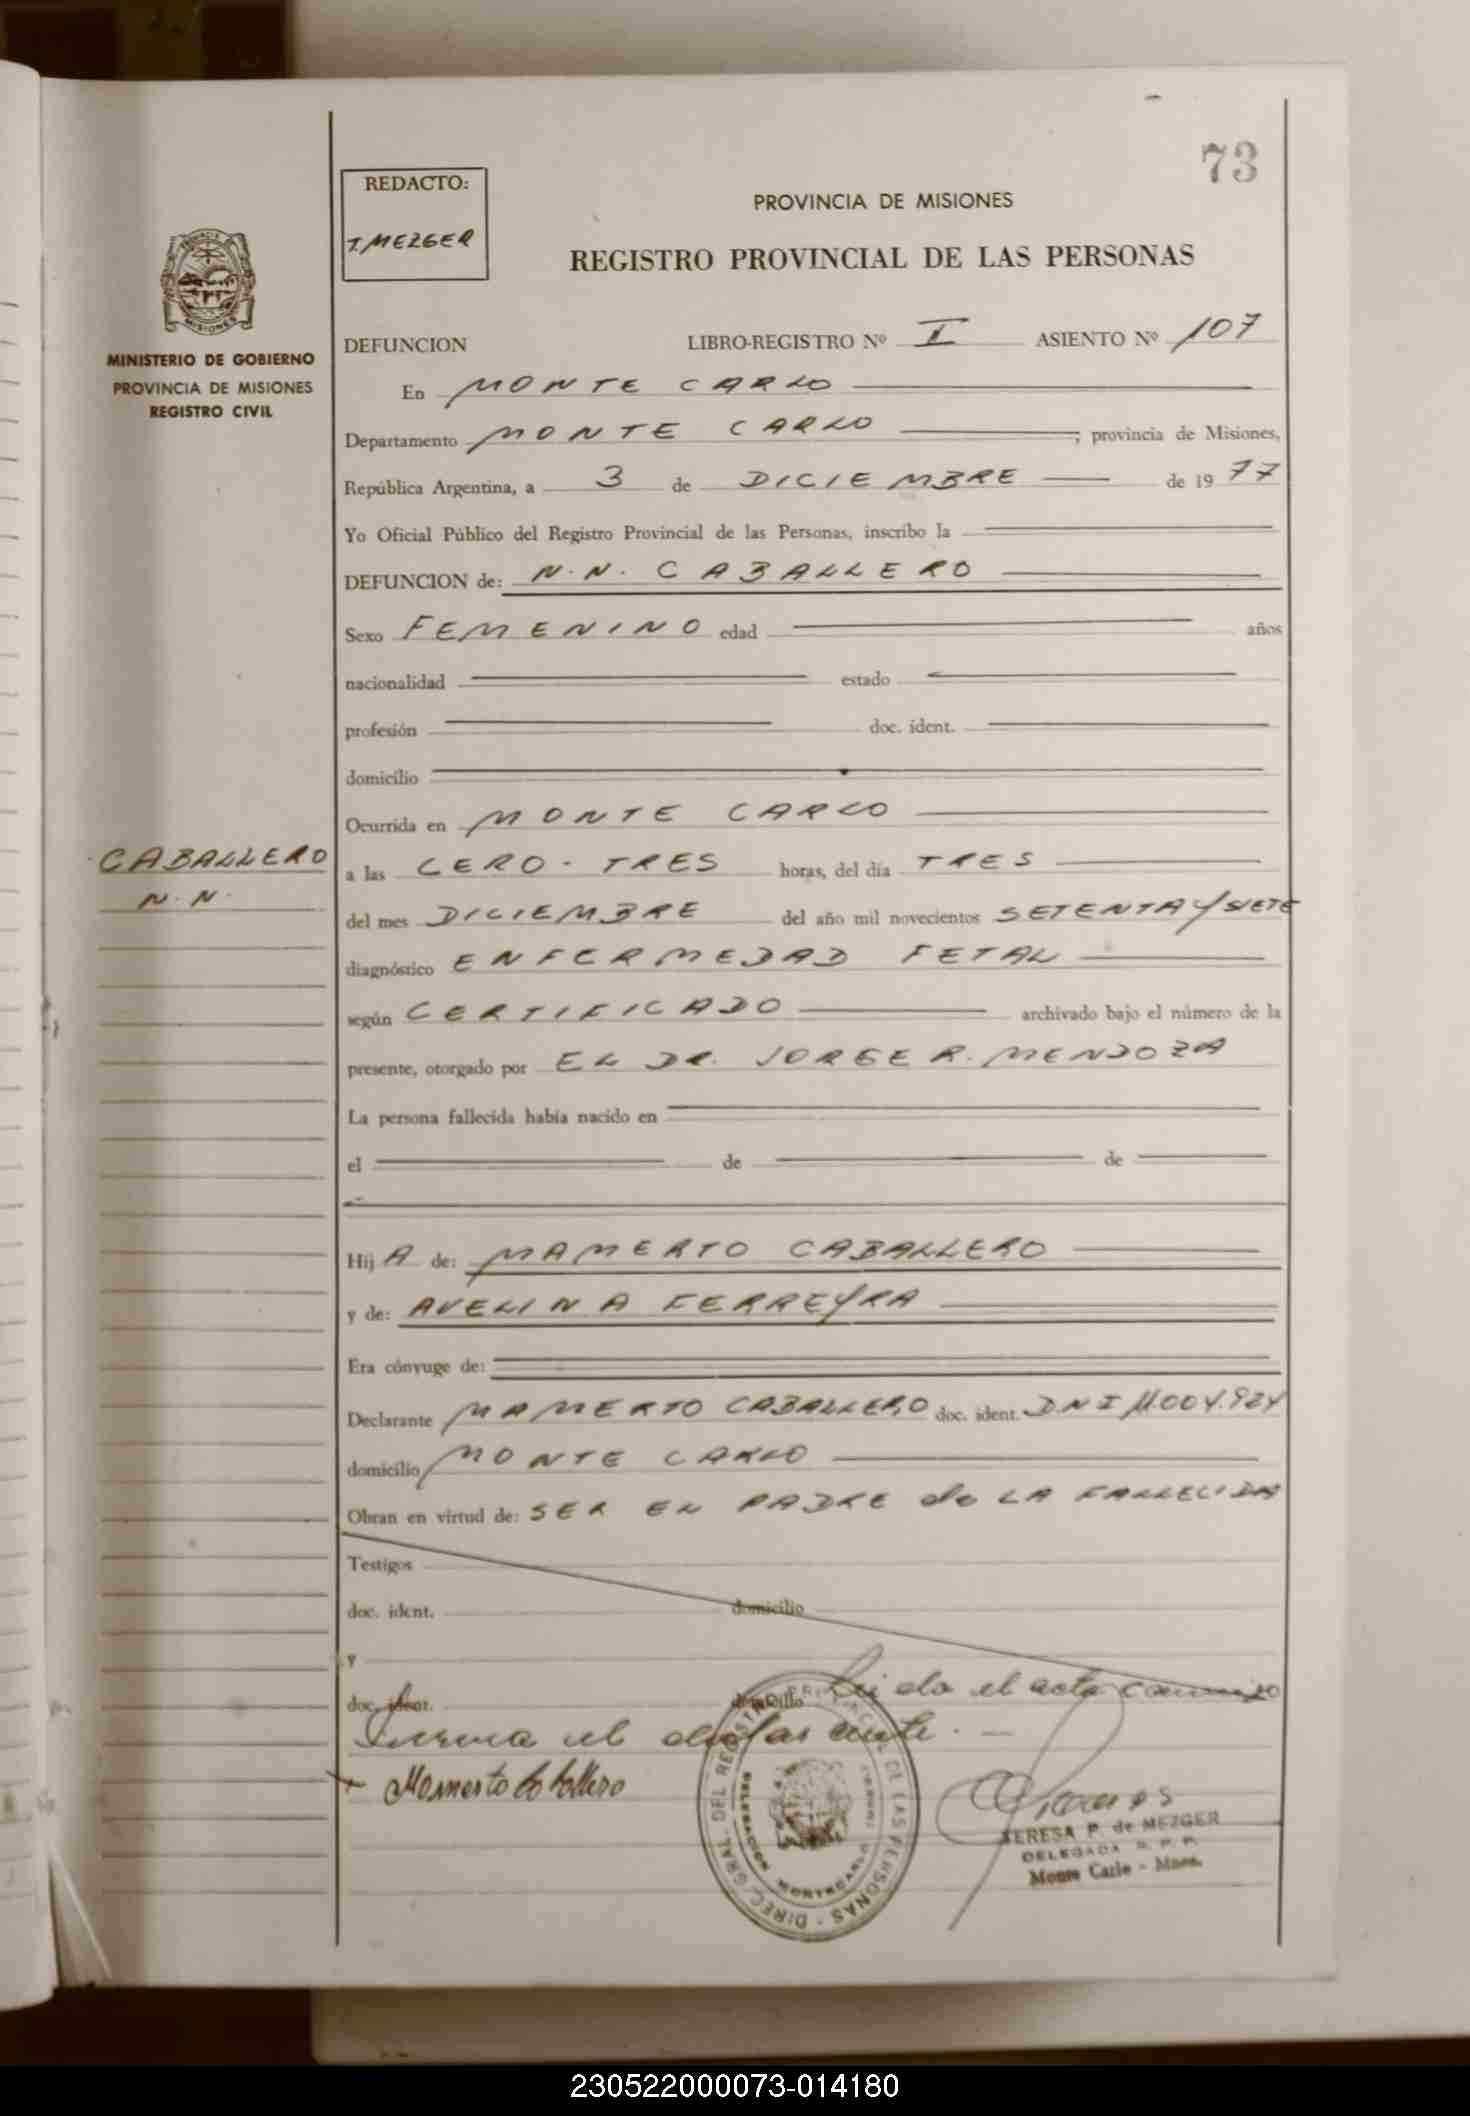 73
REDACTO:
T. MEZGER
PROVINCIA DE MISIONES
REGISTRO PROVINCIAL DE LAS PERSONAS
MINISTERIO DE GOBIERNO
PROVINCIA DE MISIONES
REGISTRO CIVIL
DEFUNCION LIBRO-REGISTRO Nº I ASIENTO Nº 107
En MONTE CARLO
Departamento MONTE CARLO; provincia de Misiones,
República Argentina, a 3 de DICIEMBRE de 1977
Yo Oficial Público del Registro Provincial de las Personas, inscribo la
DEFUNCION de: N.N. CABALLERO
Sexo FEMENINO edad años
nacionalidad estado
profesión doc. ident.
domicilio
Ocurrida en MONTE CARLO
CABALLERO
N.N.
a las CERO - TRES horas, del día TRES
del mes DICIEMBRE del año mil novecientos SETENTA Y SIETE
diagnóstico ENFERMEDAD FETAL
según CERTIFICADO archivado bajo el número de la
presente, otorgado por EL DR. JORGE R. MENDOZA
La persona fallecida había nacido en
el de de
Hij A de: MAMERTO CABALLERO
y de: AVELINA FERREYRA
Era cónyuge de:
Declarante MAMERTO CABALLERO doc. ident. DNI 11.004.924
domicilio MONTE CARLO
Obran en virtud de: SER EL PADRE de LA FALLECIDA
Testigos
doc. ident. domicilio
y
doc. ident. domicilio Leido el acta conmigo
Firma el declarante.
Mamerto Caballero
DIREC. GRAL. DEL REGISTRO PROVINCIAL DE LAS PERSONAS
DELEGACION MONTECARLO
TERESA P. de MEZGER
DELEGADA R. P. P.
Monte Carlo - Mnes.
230522000073-014180